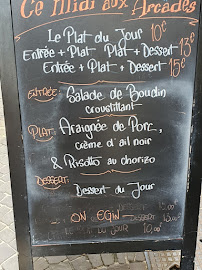 Ce Midi aux Arcades
Le Plat du Jour 10€
Entrée + Plat Plat + Dessert 13€
Entrée + Plat + Dessert 15€
ENTRÉE: Salade de Boudin
croustillant
PLAT: Araignée de Porc,
crème d'ail noir
& Risotto au chorizo
DESSERT:
Dessert du Jour
ON EGIN
DESSERT
DU JOUR